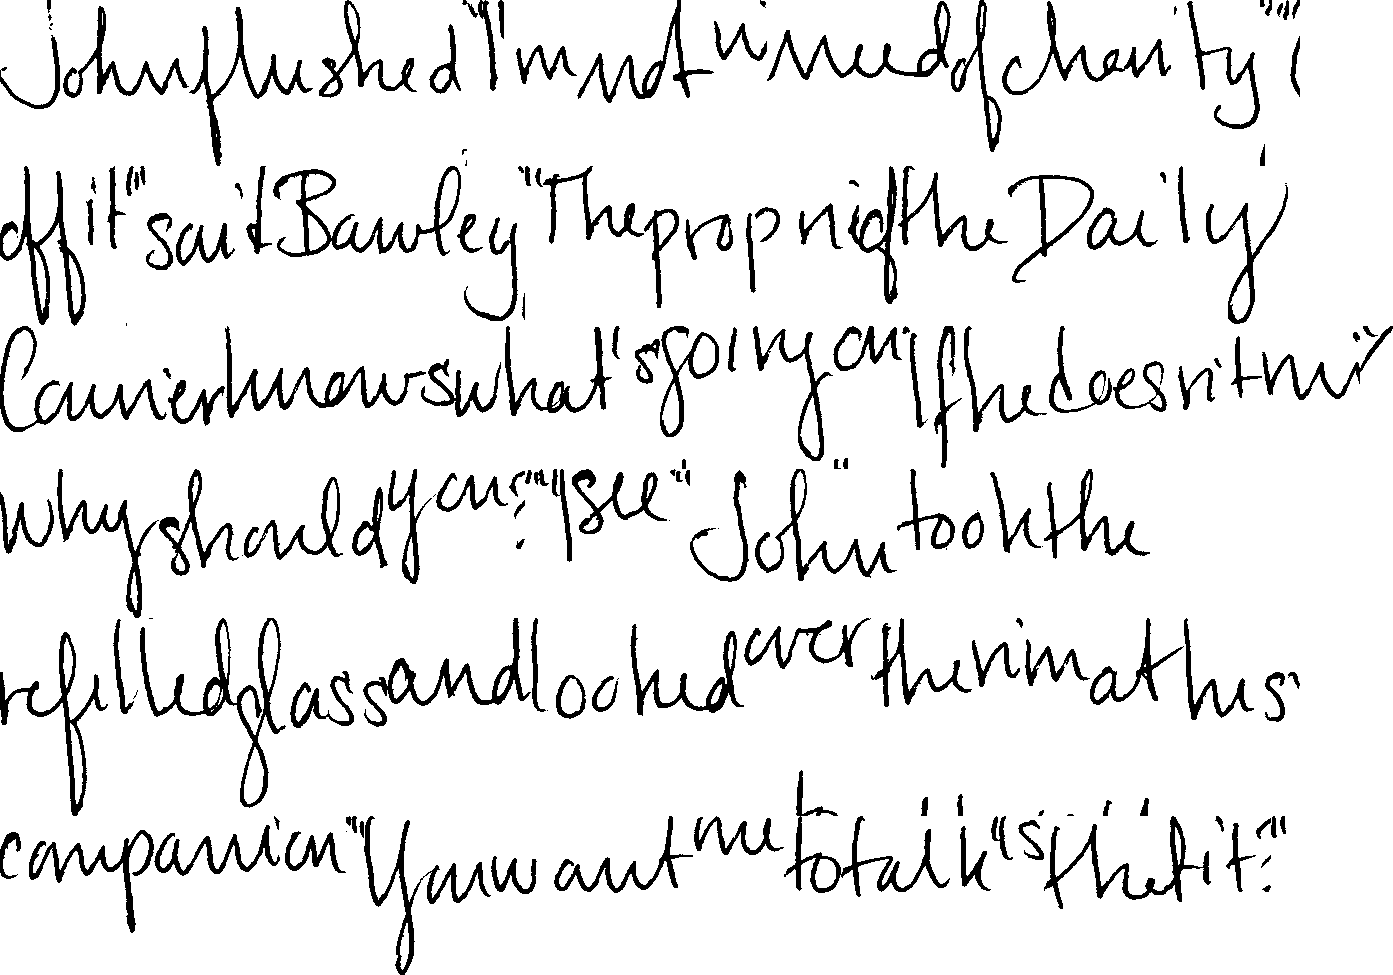 John flushed "I'm not in need of charity" "
off it" said Bawley "The prop ri of the Daily
Courier knows what's going on If he doesn't mi
why should you?" "I see" John took the
refilled glass and looked over the rim at his
companion "You want me to talk is that it?"